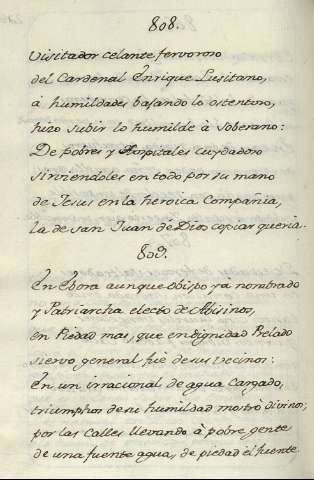 808.
Visitador celante fervoroso
del Cardenal Enrique Lusitano,
a humildades basando lo ostentoso,
hizo subir lo humilde à Soberano:
De pobres y Hospitales cuydadoso
sirviendoles en todo por su mano
de Jesus en la heroica Compañia,
la de san Juan de Dios copiar queria.
809.
En Ebora aunque obispo yà nombrado
y Patriarcha electo de Abisinos,
en Piedad mas, que en dignidad Prelado
siervo general fuè de sus vecinos:
En un irracional de agua Cargado,
triumphos de su humildad mostrò divinos;
por las Calles llevando à pobre gente
de una fuente agua, de piedad èl fuente